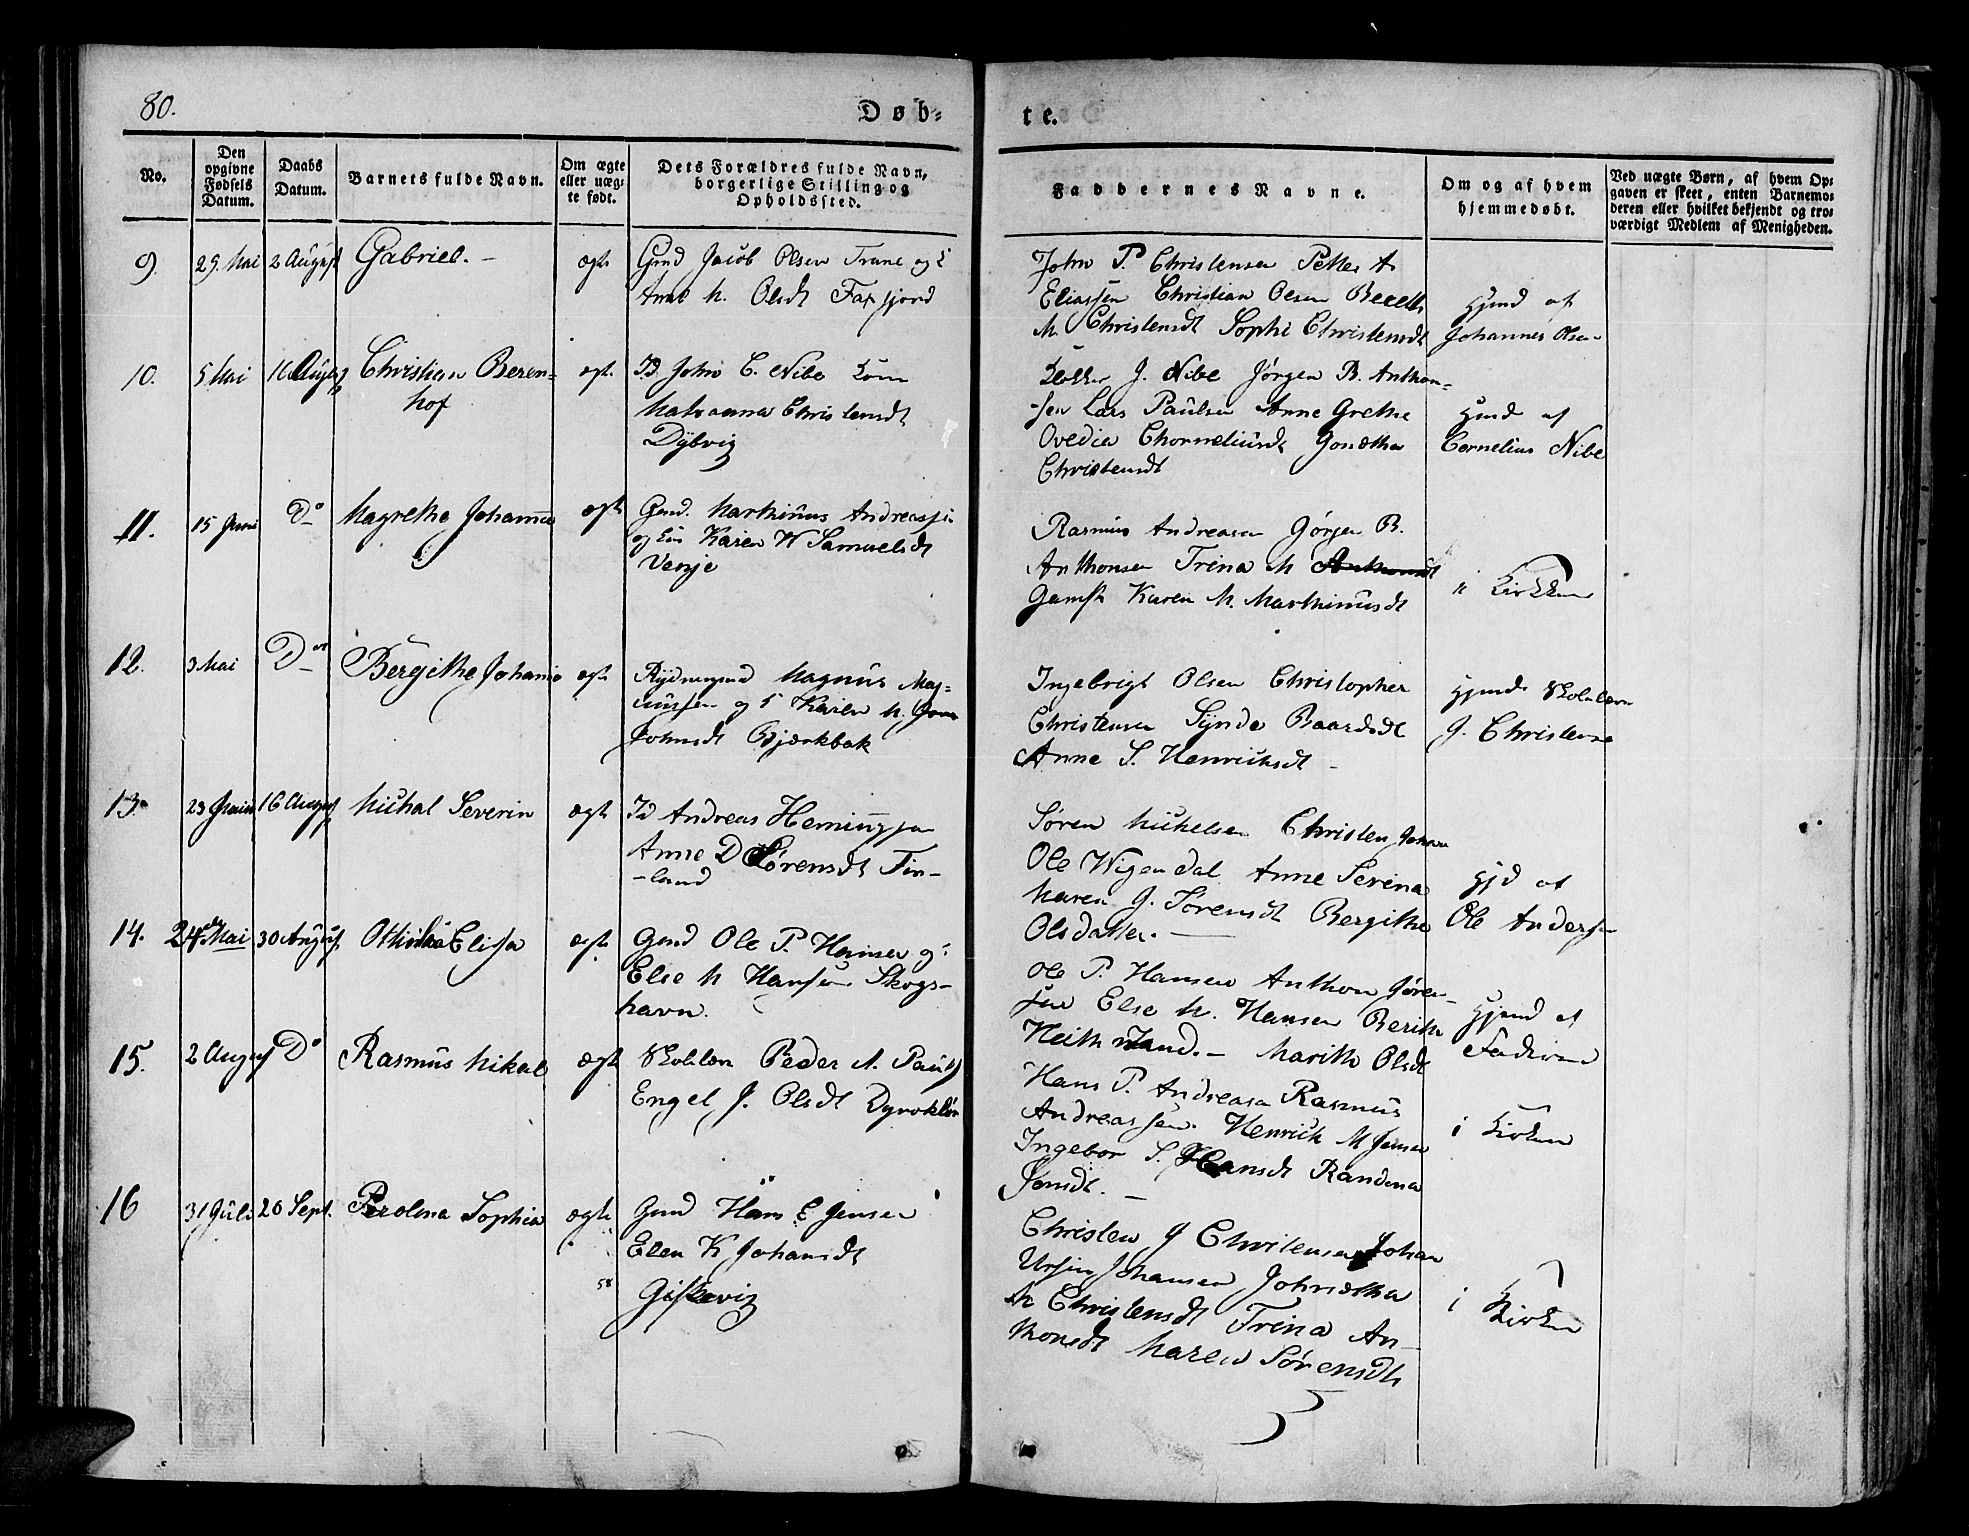 80.
Døb=
te.
No.
Den opgivne Fødsels Datum.
Daabs Datum.
Barnets fulde Navn.
Om ægte eller uægte født.
Dets Forældres fulde Navn, borgerlige Stilling og Opholdssted.
Faddernes Navne.
Om og af hvem hjemmedøbt.
Ved uægte Børn, af hvem Opgaven er skeet, enten Barnemoderen eller hvilket bekjendt og troværdigt Medlem af Menigheden.
9. 29. Mai 2 August Gabriel. - ægte Gmd Jacob Olsen Trane og
Anne M. Olsdt Faxfjord
John P. Christensen Petter A
Eliassen Christian Olsen Berett
M Christensdt Sophi Christensdt
Hjmd af
Johannes Olsen
10. 5 Mai 16 August Christian Beren=
hof
ægt. John C. Nibe
Malvanna Christensdt
Dybvig
J. Nibe Jørgen B. Anthon=
-sen Lars Paulsen Anne Grethe
Ovedia Chorneliusdt Jonetha
Christensdt
Hjmd af
Cornelius Nibe
11. 15 Juni Do Magrethe Johanna ægte Gmd. Marthinus Andreassen
og Karen W Samuelsdt
Venje
Rasmus Andreasen Gørgen B.
Anthonsen Trina M Anthonsdt
Karen M. Marthinusdt
i Kirken
12. 3 Mai Do Bergithe Johanna ægte Magnus Mag=
nussen og Karen M.
Johnsdt Bjærkbak
Ingebrigt Olsen Christopher
Christensen Synde Baardsdt
Anne S. Henrichsdt -
Hjmd
J. Christensen
13. 23 Juni 16 August Michal Severin ægte Id Andreas Hemingsen
Anne D Sørensdt Fin-
-land
Søren Mickelsen Christen Johan
Ole Wigendal Anne Serina
Maren J. Sørensdt Bergithe
Olsdatter. -
Hjd af
Ole Andersen
14. 24de Mai 30 August Elisa ægte. Gmd Ole P. Hansen og
Else M Hansen Skogs-
havn.
Ole P. Hansen Anthon Gøren-
sen Else M. Hansen Berith
Marith Olsdt
Hjmd af
Faderen
15. 2 August Do Rasmus Mikal ægte Peder A. Paulsen
Engel J. Olsdt
Hans P. Andreasen Rasmus
Andreassen. Henrich M Jensen
Ingebor S. Hansdt Randina
Jonsdt. -
i Kirken
16 31 Juli 20 Sept. Perolena Sophia ægte Gmd Hans E Jensen
Elen K Johansdt
58
Giskevig
Christen J Christensen Johan
Ursin Johansen Johnetha
M Christensdt Trina An-
thonsdt Maren Sørensdt
i Kirken